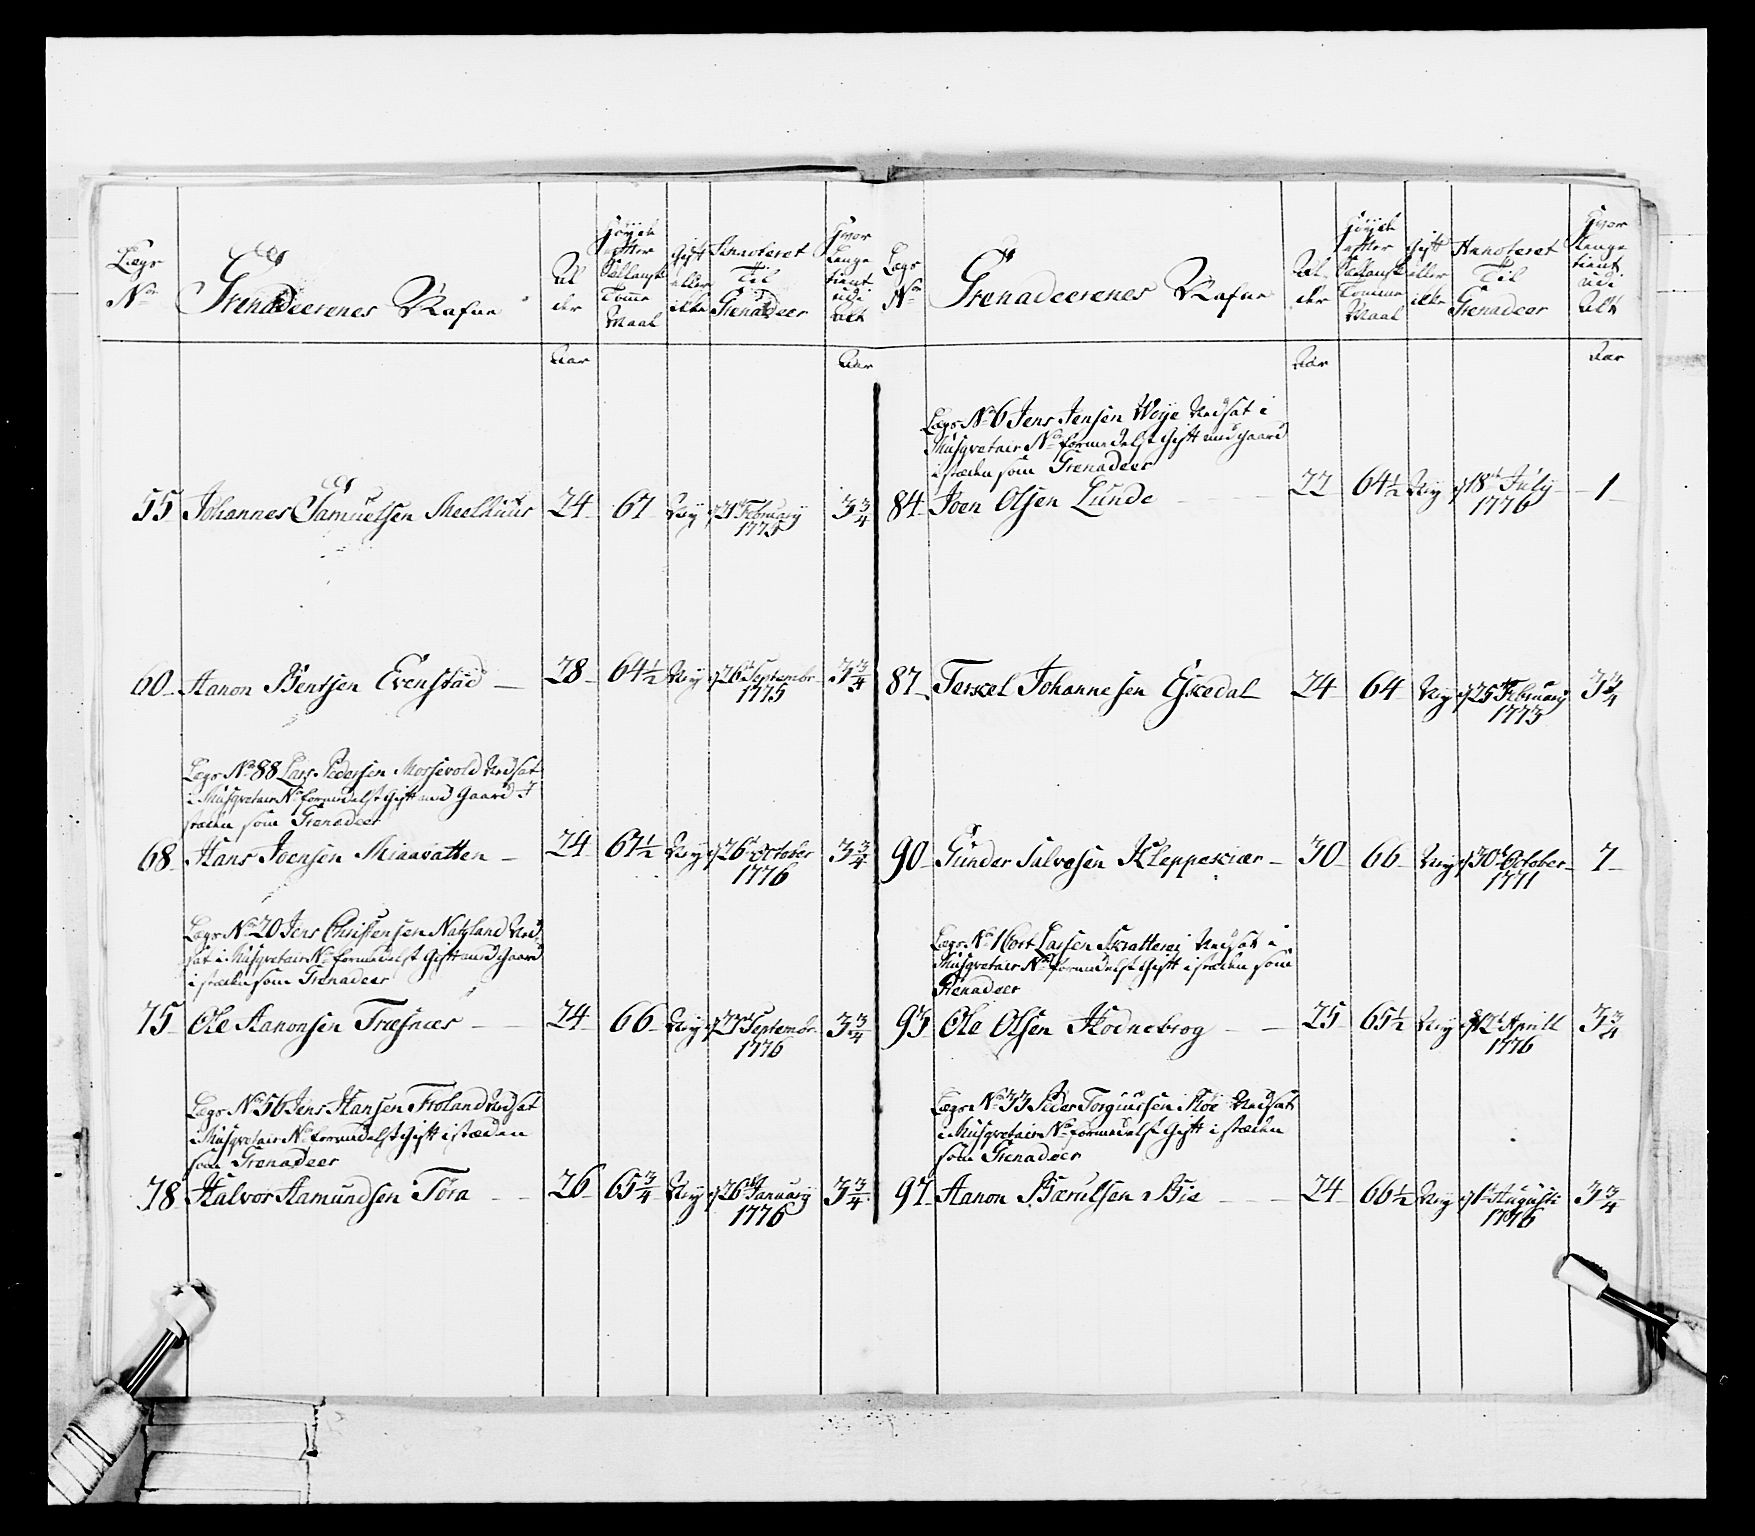 Lægs
No
Grenadeerenes Nafne
Al
der
Höyde
efter
Sællansk
Tomme
Maal
Gift
eller
ikke
Anoteret
Til
Grenadeer
Hvor
Længe
tient
udi
Alt
Aar
Aar
55 Johannes Samuelsen 24 67 Ney d 21t February 3 3/4
1775
60 Aanon Bentsen Evenstad 28 64 1/2 Ney d 26t Septembr 3 3/4
1775
Lægs No 88 Lars Pedersen Mossevold Udsat
i Musqvetair No formedelst Gift med Gaard I
stæden som Grenadeer
68 Hans Joensen Miaavatten 24 67 1/2 Ney d 26t October 3 3/4
1776
Lægs No 20 Jens Christensen Natzland Ud
sat i Musqvetair No formedelst Gift med Gaard
i stæden som Grenadeer
75 Ole Aanonsen Træsnæs 24 66 Ney d 27t Septembr 3 3/4
1776
Lægs No 56 Jens Hansen Froland Udsat
i Musqvetair No formedelst Gift i stæden
som Grenadeer
78 Halvor Aamundsen Töra 26 65 3/4 Ney d 26t January 3 3/4
1776
Lægs
No
Grenadeerenes Nafne
Al
der
Höyde
efter
Sællansk
Tomme
Maal
Gift
eller
ikke
Annoteret
Til
Grenadeer
Hvor
Længe
tient
udi
Alt
Aar
Aar
Lægs No 6 Jens Jensen Weye Udsat i
Musqvetair No formedelst Gift med Gaard
i stæden som Grenadeer
84 Joen Olsen Lunde 22 64 1/2 Ney d 18t July 1
1776
87 Terkel Johannesen Eskedal 24 64 Ney d 25t February 3 3/4
1773
90 Gunder Salvesen Kleppeskiær 30 66 Ney d 30t October 7
1771
Lægs No Lassen Udsat i
Musqvetair No formedelst Gift i stæden som
Grenadeer
93 Ole Olsen Hodnebrog 25 65 1/2 Ney d 12t Aprill 3 3/4
1776
Lægs No 33 Peder Torgiussen Udsat
i Musqvetair No formedelst Gift i stæden
som Grenadeer
97 Aanon Bærulsen Bie 24 66 1/2 Ney d 1t Augusti 3 3/4
1776